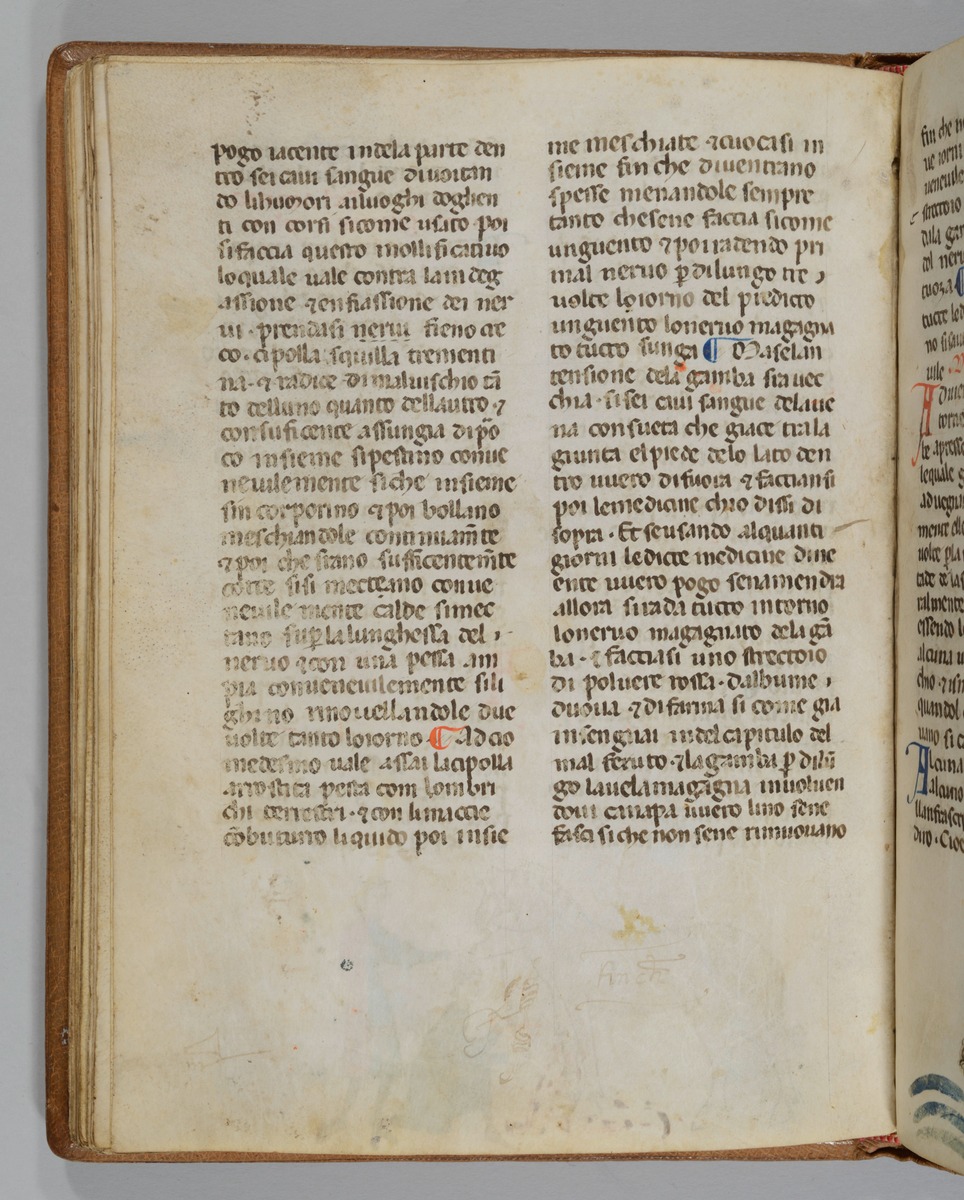 pogo iacente indela parte den
tro sei caui sangue diuoitan
do lihumori ailuoghi doglien
ti con corsi sicome usato poi
sifaccia questo mollificatiuo
loquale uale contra lain deg
assione ⁊ enfiassione dei ner
ui · prendasi nerui fieno gre
co · cipolla squilla trementi
na · ⁊ radice di maluischio tã
to delluno quanto dellautro · ⁊
con suficente assungia di põ
co insieme sipestino conue
neuilemente siche insieme
sin corporino ⁊ poi bollano
meschiandole continuamte
⁊ poi che siano sufficentemte
cotte sisi metteano conue
neuile mente calde simec
tano sup la lunghessa del
neruo ⁊ con una pessa am
pia conueneuilemente sili
ghino rinouellandole due
uolte tanto loiorno ¶ Ad cio
medesmo uale assai lacipolla
arrostita pesta com lombri
chi terrestri · ⁊ con limaccie
cõbuturo liquido poi insie
me meschiate ⁊ cuocasi in
sieme fin che diuentano
spesse menandole sempre
tanto chesene faccia sicome
unguento ⁊ poi radendo pri
mal neruo p dilungo tre
uolte loiorno del predicto
unguento loneruo magagna
to tucto sunga ¶ Maselan
tensione dela gamba sia uec
chia · sisei caui sangue delaue
na consueta che giace trala
giunta elpiede delo lato den
tro uuero difuora ⁊ facciansi
poi lemedicine chio dissi di
sopra · Et seusando alquanti
giorni ledicte medicine diue
ente uuero pogo senamendra
allora sirada tucto intorno
loneruo magagnato dela gã
ba · ⁊ facciasi uno strectoio
di poluere rossa · dalbume
duoua ⁊ di farina si come gia
insengnai indel capitulo del
mal feruto · ⁊ lagamba p dilũ
go lauela magagna inuoluen
doui canapa uuero lino sene
fasci si che non sene rimuouano